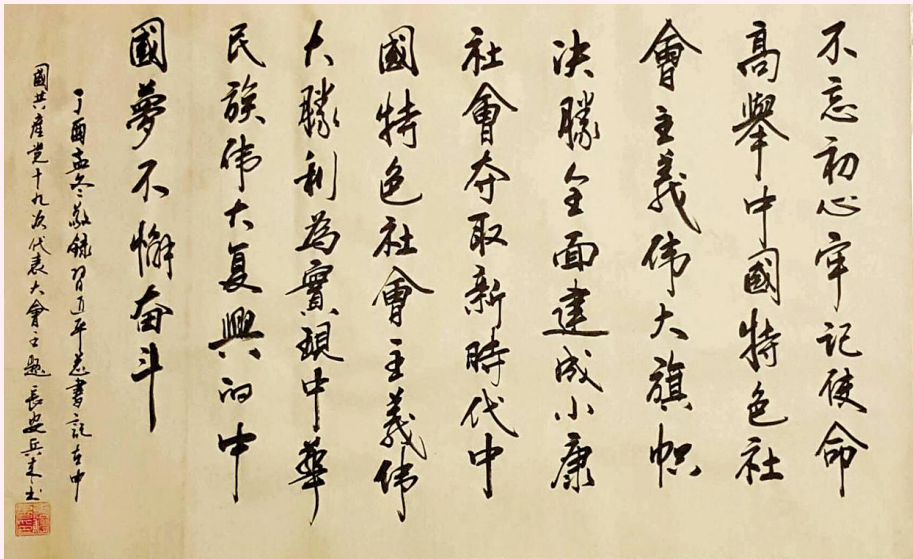 不忘初心牢记使命
高舉中國特色社
會主義伟大旗帜
决勝全面建成小康
社會夺取新時代中
國特色社會主義伟
大勝利為實現中華
民族伟大复興的中
國夢不懈奋斗
丁酉孟冬敬錄習近平总書記在中
國共產党十九次代表大會主题 長安兵来书